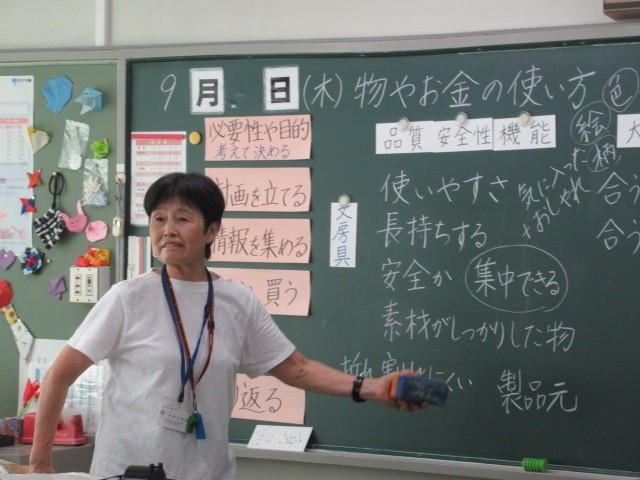 9月 日(木) 物やお金の使い方
必要性や目的
考えて決める
計画を立てる
情報を集める
買う
り返る
文房具
品質 安全性 機能
使いやすさ
長持ちする
安全か
集中できる
素材がしっかりした物
製品元
気に入った
+おしゃれ
色
絵
柄
合う
合う